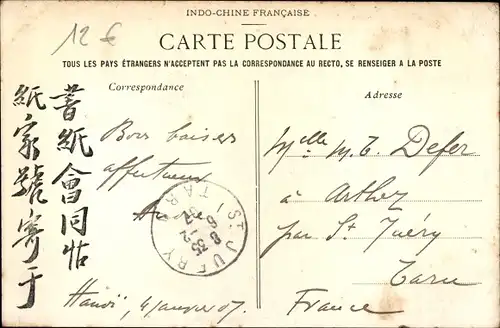 INDO-CHINE FRANÇAISE
12 €
CARTE POSTALE
TOUS LES PAYS ÉTRANGERS N'ACCEPTENT PAS LA CORRESPONDANCE AU RECTO, SE RENSEIGER A LA POSTE
Correspondance
Adresse
書紙會同怗
紙家號寄于
Bons baisers
affectueux
Hanoï, 4 janvier 07.
Mlle M. T. Defer
à Arthez
par St Juéry
Tarn
France
ST JUERY
TARN
8 35